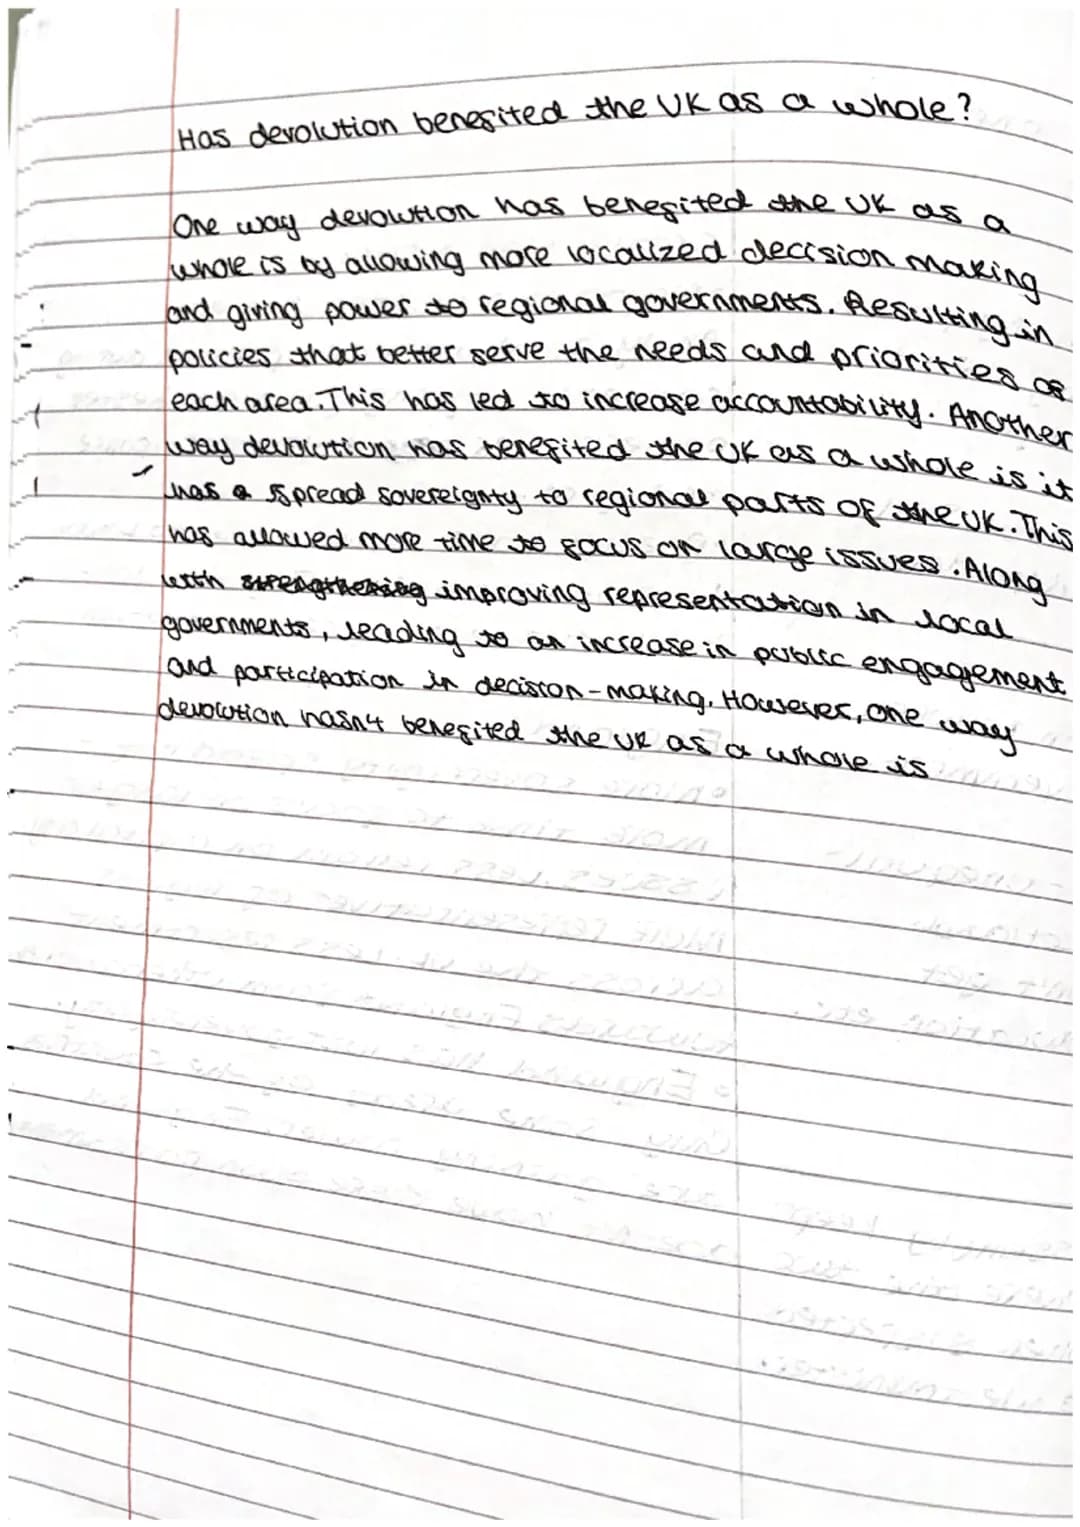 Has devolution benefited the UK as a whole?
One way devolution has benefited the UK as a
whole is by allowing more localized decision making
and giving power to regional governments. Resulting in
policies that better serve the needs and priorities of
each area. This has led to increase accountability. Another
way devolution has benefited the UK as a whole is it
has spread sovereignty to regional parts of the UK. This
has allowed more time to focus on large issues. Along
with strengthening improving representation in local
governments, leading to an increase in public engagement
and participation in decision-making. However, one way
devolution hasn't benefited the UK as a whole is